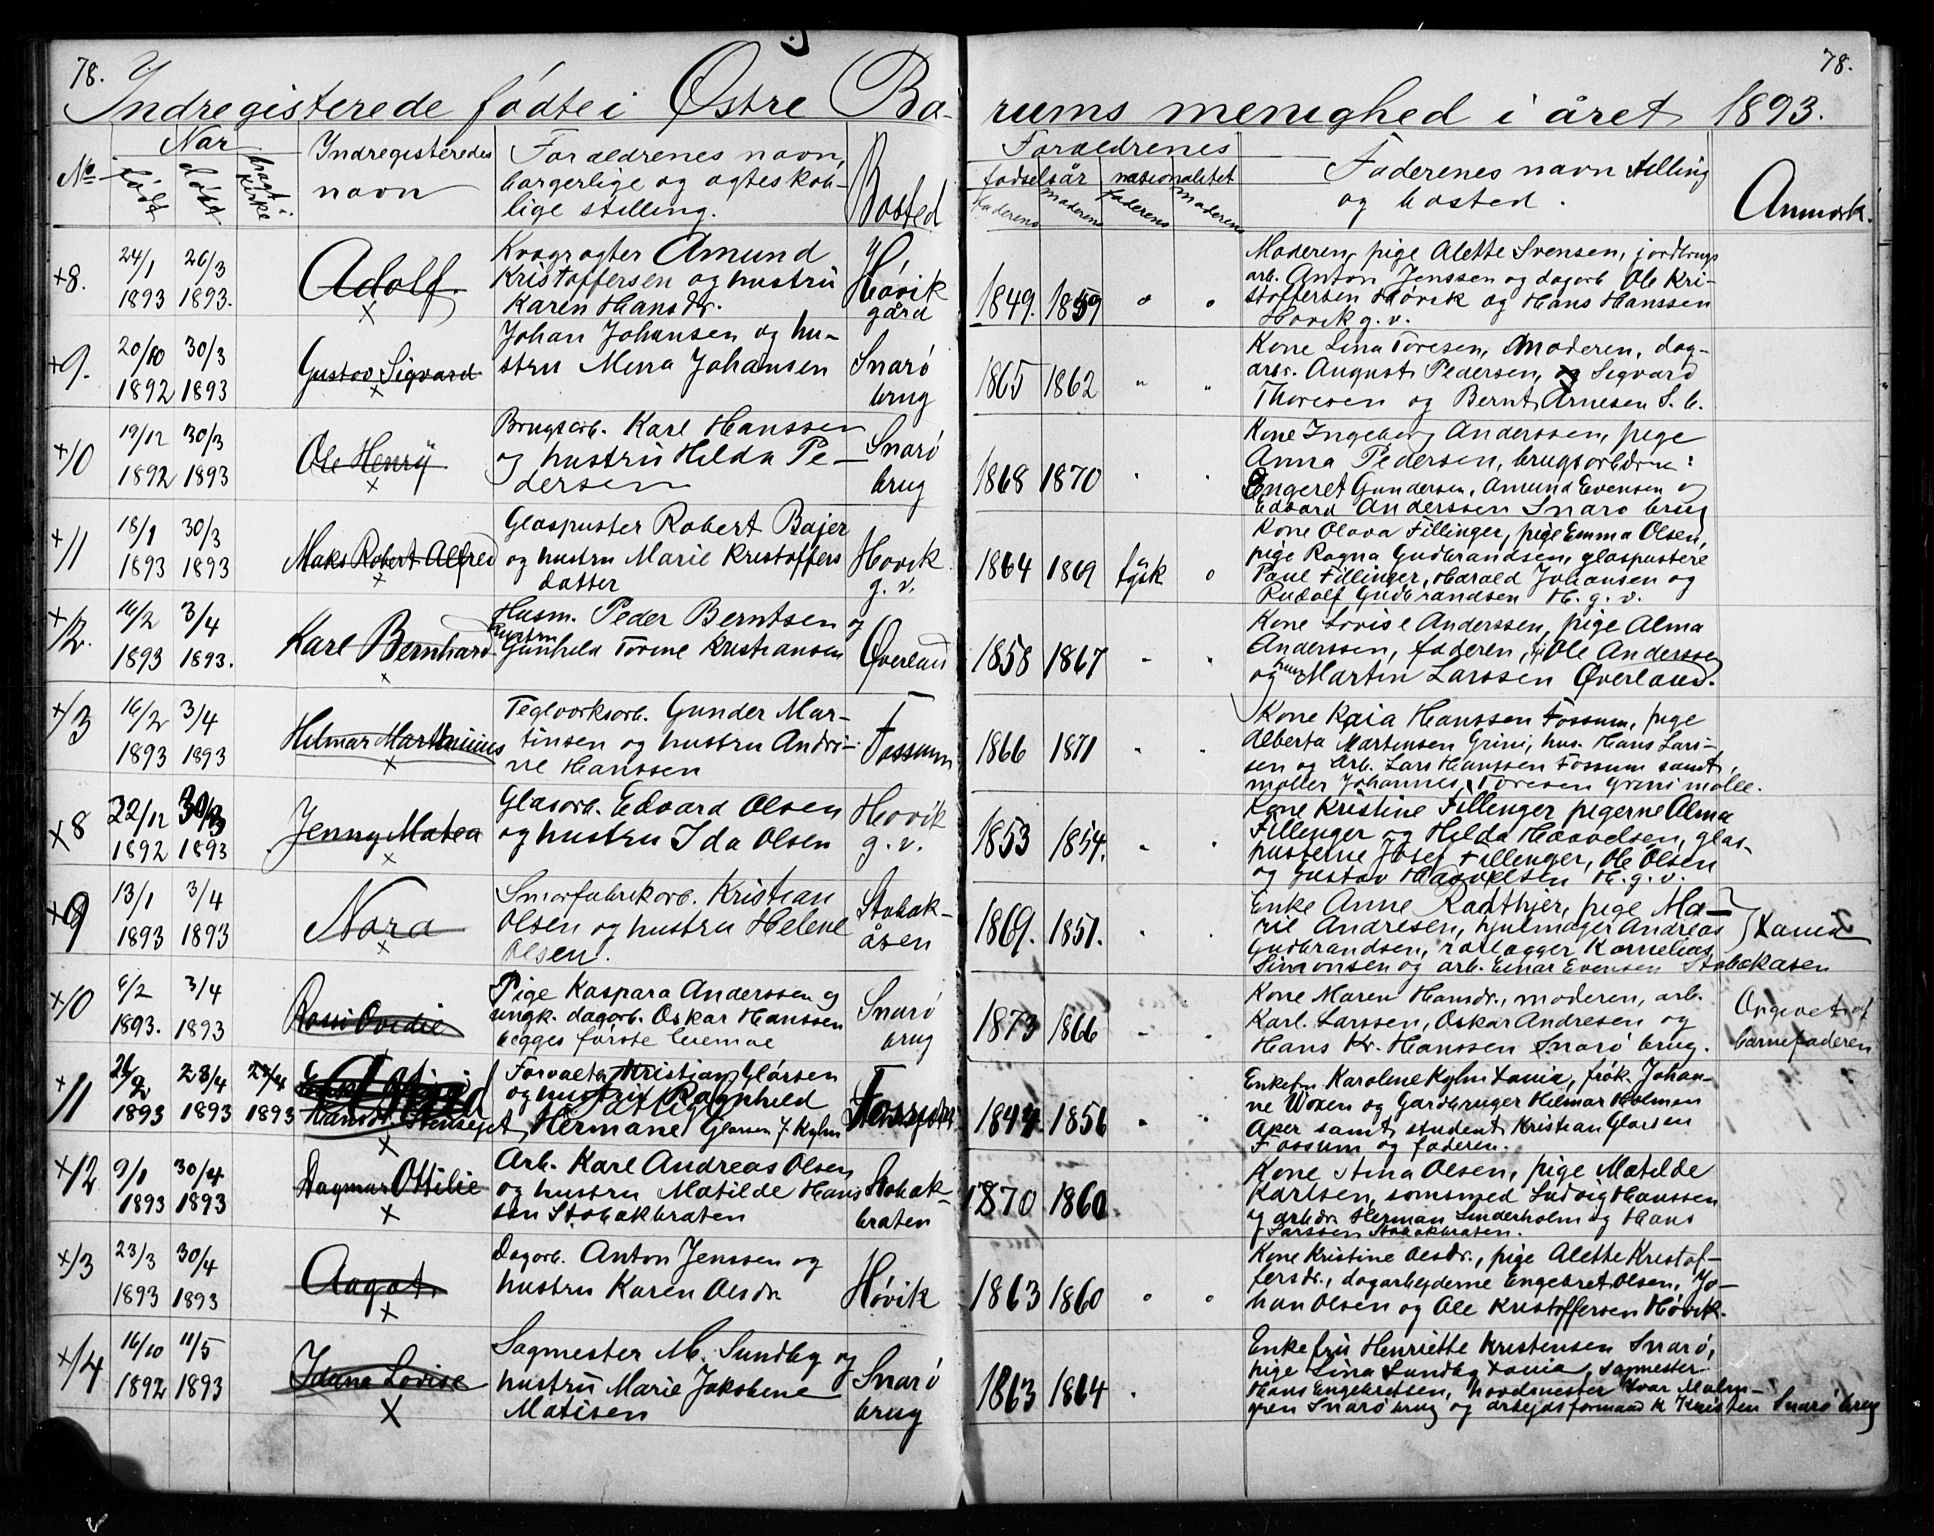 78.
78.
Indregisterede fødte i Østre Bæ-
rums menighed i året 1893.
No
Når
født
døbt
bragt i kirke
Indregisteredes
navn
Forældrenes navn,
borgerlige og ægteskab-
lige stilling.
Bosted
Forældrenes
fødselsår
nationalitet
faderens
moderens
faderens
moderens
Faderenes navn stilling
og bosted.
Anmærk.
×8.
24/1
1893
26/3
1893.
Adolf
Amund
Kristoffersen og hustru
Karen Hansdr.
Høvik
gård
1849.
1859
Moderen, pige Alette Svensen, jordbrugs
arb. Anton Jenssen og dagarb. Ole Kri-
stoffersen Høvik og Hans Hanssen
Høvik g. v.
×9.
20/10
1892
30/3
1893
Gustav Sigvard
Johan Johansen og hu-
stru Mena Johansen
Snarø
brug
1865
1862
"
"
Kone Lina Toresen, Moderen, dag-
arb. August Pedersen, og Sigvard
Thoresen og Bernt Arnesen S. b.
×10
19/12
1892
30/3
1893
Ole Henrÿ
Brugsarb. Karl Hanssen
og hustru Hilda Pe-
dersen
Snarø
brug
1868
1870
Kone Ingeborg Anderssen, pige
Anna Pedersen, brugsarb
Engeret Gundersen, Amund Evensen og
Edvard Anderssen Snarø brug
×11
18/1
1893
30/3
1893
Maks Robert Alfred
Glaspuster Robert Bajer
og hustru Marie Kristoffers
datter
Høvik
g. v.
1864
1869
tysk
Kone Olava Fillinger, pige Emma Olsen,
pige Ragna Gudbrandsen, glaspustere
Paul Fillinger, Harald Johansen og
Rudolf Gudbrandsen H. g. v.
×12.
16/2
1893
3/4
1893.
Karl Bernhard
Husm. Peder Berntsen og
hustru
Gunhild Torine Kristiansen
Øverland
1858
1867
Kone Lovise Anderssen, pige Alma
Anderssen, faderen, Ole Anderssen
og Martin Larssen Øverland.
×13
16/2
1893
3/4
1893
Hilmar Marthinius
Teglværksarb. Gunder Mar-
tinsen og hustru Andri-
ne Hanssen
Fossum
1866
1871
Kone Kaia Hanssen Fossum, pige
Alberta Martinsen Grini, hus. Hans Lars-
sen og Arb. Lars Hanssen Fossum samt
møller Johannes Toresen Grini mølle.
×8
22/12
1892
30/3
1893
Jenny Matea
Glasarb. Edvard Olsen
og hustru Ida Olsen
Høvik
g. v.
1853
1854.
Kone Kristine Fillinger pigerne Alma
Fillinger og Hilda Haavelsen, glas-
pusterne Josef Fillinger, Ole Olsen
og Gustav Haavelsen H. g. v.
×9
13/1
1893
3/4
1893
Nora
Smørfabrikarb. Kristian
Olsen og hustru Helene
Olsen.
Stabæk-
åsen
1869.
1851.
Enke Anne, pige Ma-
rie Andresen, hjulmager Andreas
Gudbrandsen, rørlægger Kornelius
Simonsen og arb. Einar Evensen Stabækåsen
×10
6/2
1893.
3/4
1893
Rossi Ovedie
Pige Kaspara Anderssen og
ungk. dagarb. Oskar Hanssen
begges første leiemaal
Snarø
brug
1873
1866
Kone Maren Hansdr., moderen, arb.
Karl Larssen, Oskar Andresen og
Hans Kr. Hanssen Snarø brug.
Opgivet af
barnefaderen
×11
26/2
1893
28/4
1893
28/4
1893
Forvalter Kristian Glørsen
og hustru Ragnhild
Hermane Glørsen f. Kyhn
Fossum
1844
1856
Enkefru Karoline Kyhn, frøk. Johan-
ne Woxen og Gardbruger Hilmar Holman
Aper samt student Kristian Glørsen
Fossum og faderen.
×12
9/1
1893
30/4
1893
Dagmar Ottilie
Arb. Karl Andreas Olsen
og hustru Matilde Hans
sen Stabækbraten
Stabæk-
braten
1870
1860
Kone Stina Olsen, pige Matilde
Karlsen, samt Ludvig Hanssen
og arbdr. Herman Linderholm og Hans
Larssen Stabækbraten.
×13
23/3
1893
30/4
1893
Aagot
Dagarb. Anton Jenssen og
hustru Karen Olsdr.
Høvik
1863
1860
Kone Kristine Olsdr., pige Alette Kristof-
fersdr., dagarbejderne Engebret Olsen, Jo-
han Olsen og Ole Kristoffersen Høvik.
×14
16/10
1892
11/5
1893
Idana Lovise
Sagmester M. Sundby og
hustru Marie Jakobine
Matisen
Snarø
brug
1863
1864
Enkefru Henriette Kristensen Snarø,
pige Lina Sundby, sagmester
Hans Engebretsen, Ivar Malm-
gren Snarø brug og arbejdsformand K. Kristen Snarø brug